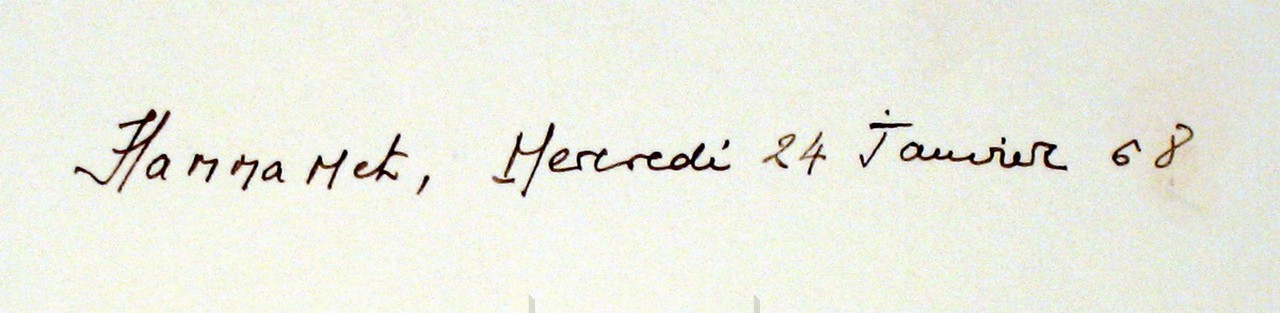 Hammamet, Mercredi 24 Janvier 68